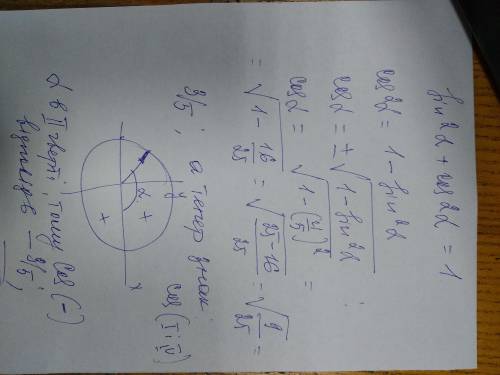 sin²α + cos²α = 1
cos²α = 1 − sin²α
cosα = ±√(1 − sin²α) ;
cosα = √(1 − (4/5)²) =
= √(1 − 16/25) = √((25−16)/25) = √(9/25) =
3/5 ; а тепер знак
cos (I i IV)
y
α
+ +
x
α в II чверті, тому cos (−)
− 3/5 ;